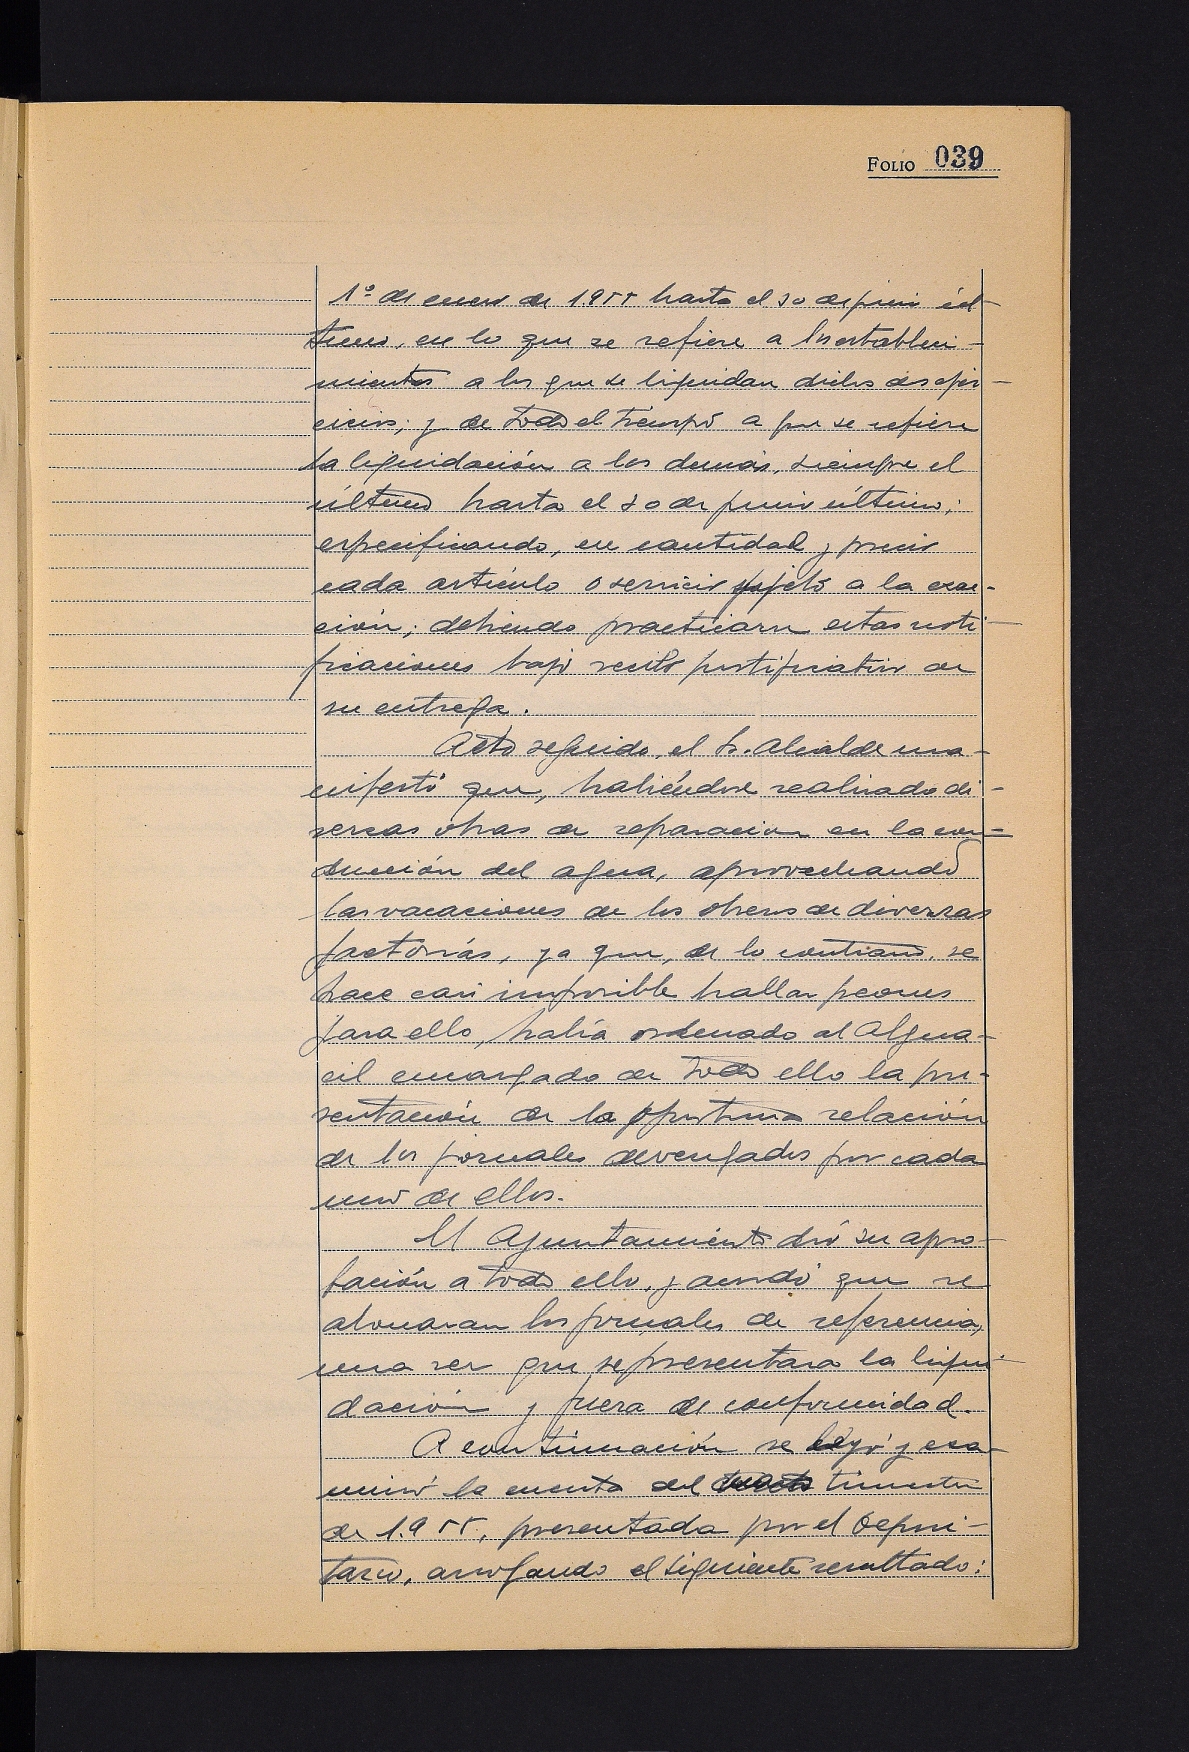 FOLIO 039
1º de enero de 1.955 hasta el 30 de junio úl-
timo, en lo que se refiere a los estableci-
mientos a los que se liquidan dichos dos ejer-
cicios; y de todo el tiempo a que se refiere
la liquidación a los demás, siempre el
último hasta el 30 de junio último;
especificando, en cantidad y precio
cada artículo o servicio sujeto a la exac-
ción; debiendo practicarse estas noti-
ficaciones bajo recibo justificativo de
su entrega.
Acto seguido, el Sr. Alcalde ma-
nifestó que, habiéndose realizado di-
versas obras de reparación en la con-
ducción del agua, aprovechando
las vacaciones de los obreros de diversas
factorías, ya que, de lo contrario, se
hace casi imposible hallar peones
para ello, había ordenado al Algua-
cil encargado de todo ello la pre-
sentación de la oportuna relación
de los jornales devengados por cada
uno de ellos.
El Ayuntamiento dió su apro-
bación a todo ello, y acordó que se
abonaran los jornales de referencia,
una vez que se presentara la liqui-
dación y fuera de conformidad.
A continuación se leyó y exa-
minó la cuenta del trimestre
de 1.955, presentada por el Deposi-
tario, arrojando el siguiente resultado: